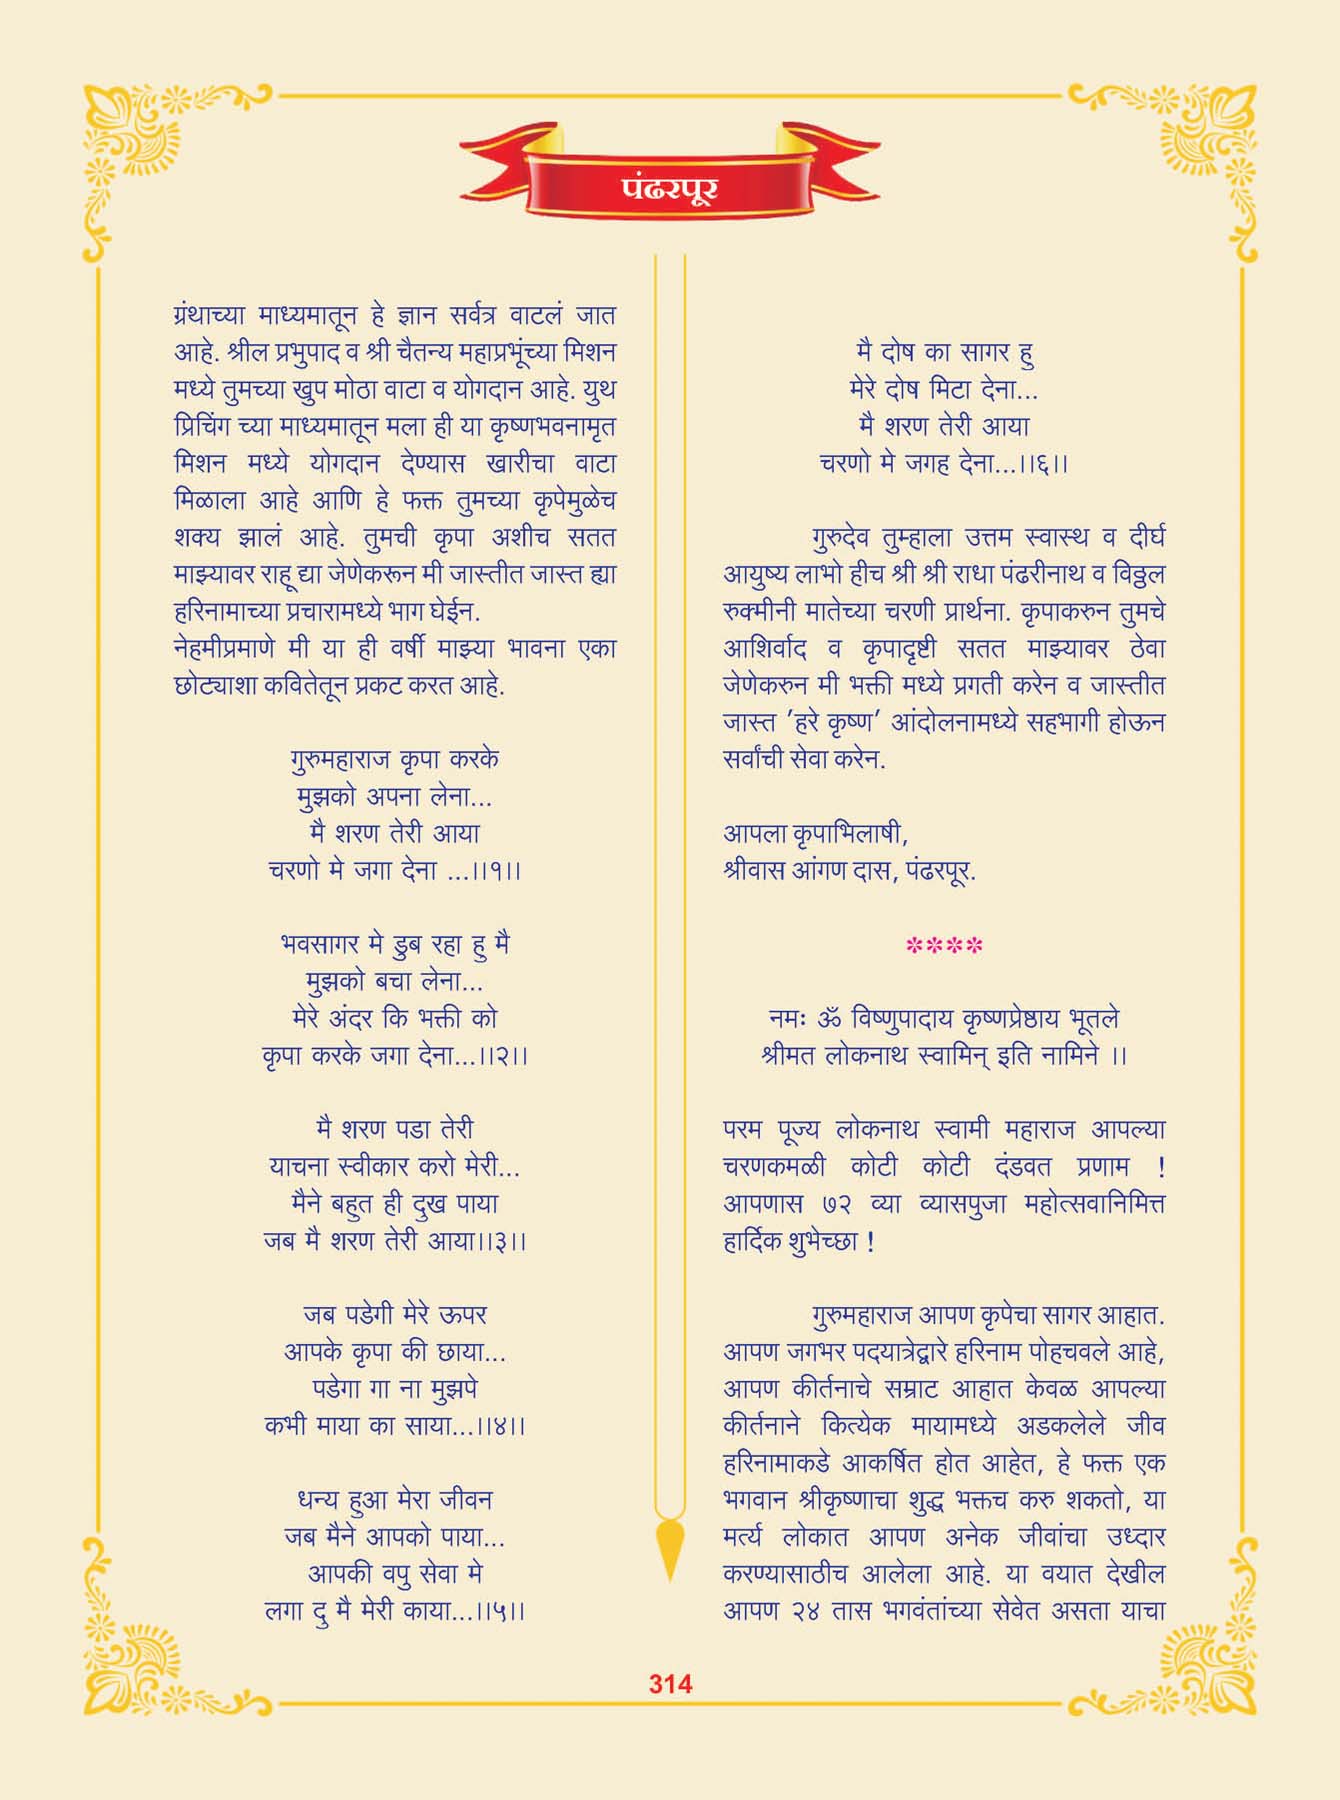 पंढरपूर
ग्रंथाच्या माध्यमातून हे ज्ञान सर्वत्र वाटलं जात
आहे. श्रील प्रभुपाद व श्री चैतन्य महाप्रभूंच्या मिशन
मध्ये तुमच्या खुप मोठा वाटा व योगदान आहे. युथ
प्रिचिंग च्या माध्यमातून मला ही या कृष्णभवनामृत
मिशन मध्ये योगदान देण्यास खारीचा वाटा
मिळाला आहे आणि हे फक्त तुमच्या कृपेमुळेच
शक्य झालं आहे. तुमची कृपा अशीच सतत
माझ्यावर राहू द्या जेणेकरून मी जास्तीत जास्त ह्या
हरिनामाच्या प्रचारामध्ये भाग घेईन.
नेहमीप्रमाणे मी या ही वर्षी माझ्या भावना एका
छोट्याशा कवितेतून प्रकट करत आहे.
गुरुमहाराज कृपा करके
मुझको अपना लेना...
मै शरण तेरी आया
चरणो मे जगा देना ...।।१।।
भवसागर मे डुब रहा हु मै
मुझको बचा लेना...
मेरे अंदर कि भक्ती को
कृपा करके जगा देना...।।२।।
मै शरण पडा तेरी
याचना स्वीकार करो मेरी...
मैने बहुत ही दुख पाया
जब मै शरण तेरी आया।।३।।
जब पडेगी मेरे ऊपर
आपके कृपा की छाया...
पडेगा गा ना मुझपे
कभी माया का साया...।।४।।
धन्य हुआ मेरा जीवन
जब मैने आपको पाया...
आपकी वपु सेवा मे
लगा दु मै मेरी काया...।।५।।
मै दोष का सागर हु
मेरे दोष मिटा देना...
मै शरण तेरी आया
चरणो मे जगह देना...।।६।।
गुरुदेव तुम्हाला उत्तम स्वास्थ व दीर्घ
आयुष्य लाभो हीच श्री श्री राधा पंढरीनाथ व विठ्ठल
रुक्मीनी मातेच्या चरणी प्रार्थना. कृपाकरुन तुमचे
आशिर्वाद व कृपादृष्टी सतत माझ्यावर ठेवा
जेणेकरुन मी भक्ती मध्ये प्रगती करेन व जास्तीत
जास्त ’हरे कृष्ण’ आंदोलनामध्ये सहभागी होऊन
सर्वांची सेवा करेन.
आपला कृपाभिलाषी,
श्रीवास आंगण दास, पंढरपूर.
****
नमः ॐ विष्णुपादाय कृष्णप्रेष्ठाय भूतले
श्रीमत लोकनाथ स्वामिन् इति नामिने ।।
परम पूज्य लोकनाथ स्वामी महाराज आपल्या
चरणकमळी कोटी कोटी दंडवत प्रणाम !
आपणास ७२ व्या व्यासपुजा महोत्सवानिमित्त
हार्दिक शुभेच्छा !
गुरुमहाराज आपण कृपेचा सागर आहात.
आपण जगभर पदयात्रेद्वारे हरिनाम पोहचवले आहे,
आपण कीर्तनाचे सम्राट आहात केवळ आपल्या
कीर्तनाने कित्येक मायामध्ये अडकलेले जीव
हरिनामाकडे आकर्षित होत आहेत, हे फक्त एक
भगवान श्रीकृष्णाचा शुद्ध भक्तच करु शकतो, या
मर्त्य लोकात आपण अनेक जीवांचा उध्दार
करण्यासाठीच आलेला आहे. या वयात देखील
आपण २४ तास भगवंतांच्या सेवेत असता याचा
314